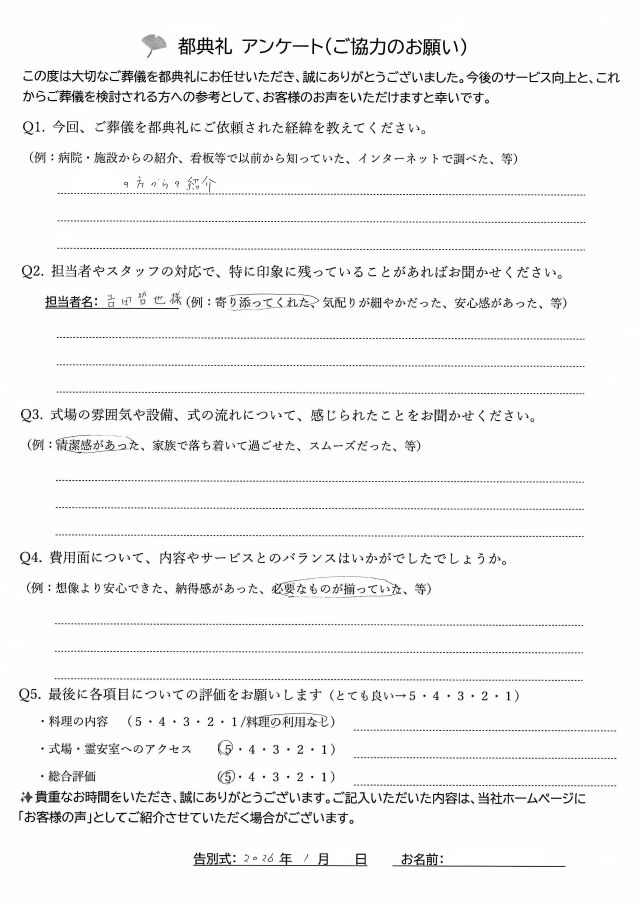 都典礼 アンケート(ご協力のお願い)
この度は大切なご葬儀を都典礼にお任せいただき、誠にありがとうございました。今後のサービス向上と、これ
からご葬儀を検討される方への参考として、お客様のお声をいただけますと幸いです。
Q1. 今回、ご葬儀を都典礼にご依頼された経緯を教えてください。
(例：病院・施設からの紹介、看板等で以前から知っていた、インターネットで調べた、等)
の方からの紹介
Q2. 担当者やスタッフの対応で、特に印象に残っていることがあればお聞かせください。
担当者名: 吉田哲也様 (例：寄り添ってくれた、気配りが細やかだった、安心感があった、等)
Q3. 式場の雰囲気や設備、式の流れについて、感じられたことをお聞かせください。
(例：清潔感があった、家族で落ち着いて過ごせた、スムーズだった、等)
Q4. 費用面について、内容やサービスとのバランスはいかがでしたでしょうか。
(例：想像より安心できた、納得感があった、必要なものが揃っていた、等)
Q5. 最後に各項目についての評価をお願いします(とても良い→5・4・3・2・1)
・料理の内容 (5・4・3・2・1/料理の利用なし)
・式場・霊安室へのアクセス (5・4・3・2・1)
・総合評価 (5・4・3・2・1)
貴重なお時間をいただき、誠にありがとうございます。ご記入いただいた内容は、当社ホームページに
「お客様の声」としてご紹介させていただく場合がございます。
告別式: 2026年 1月 日 お名前: